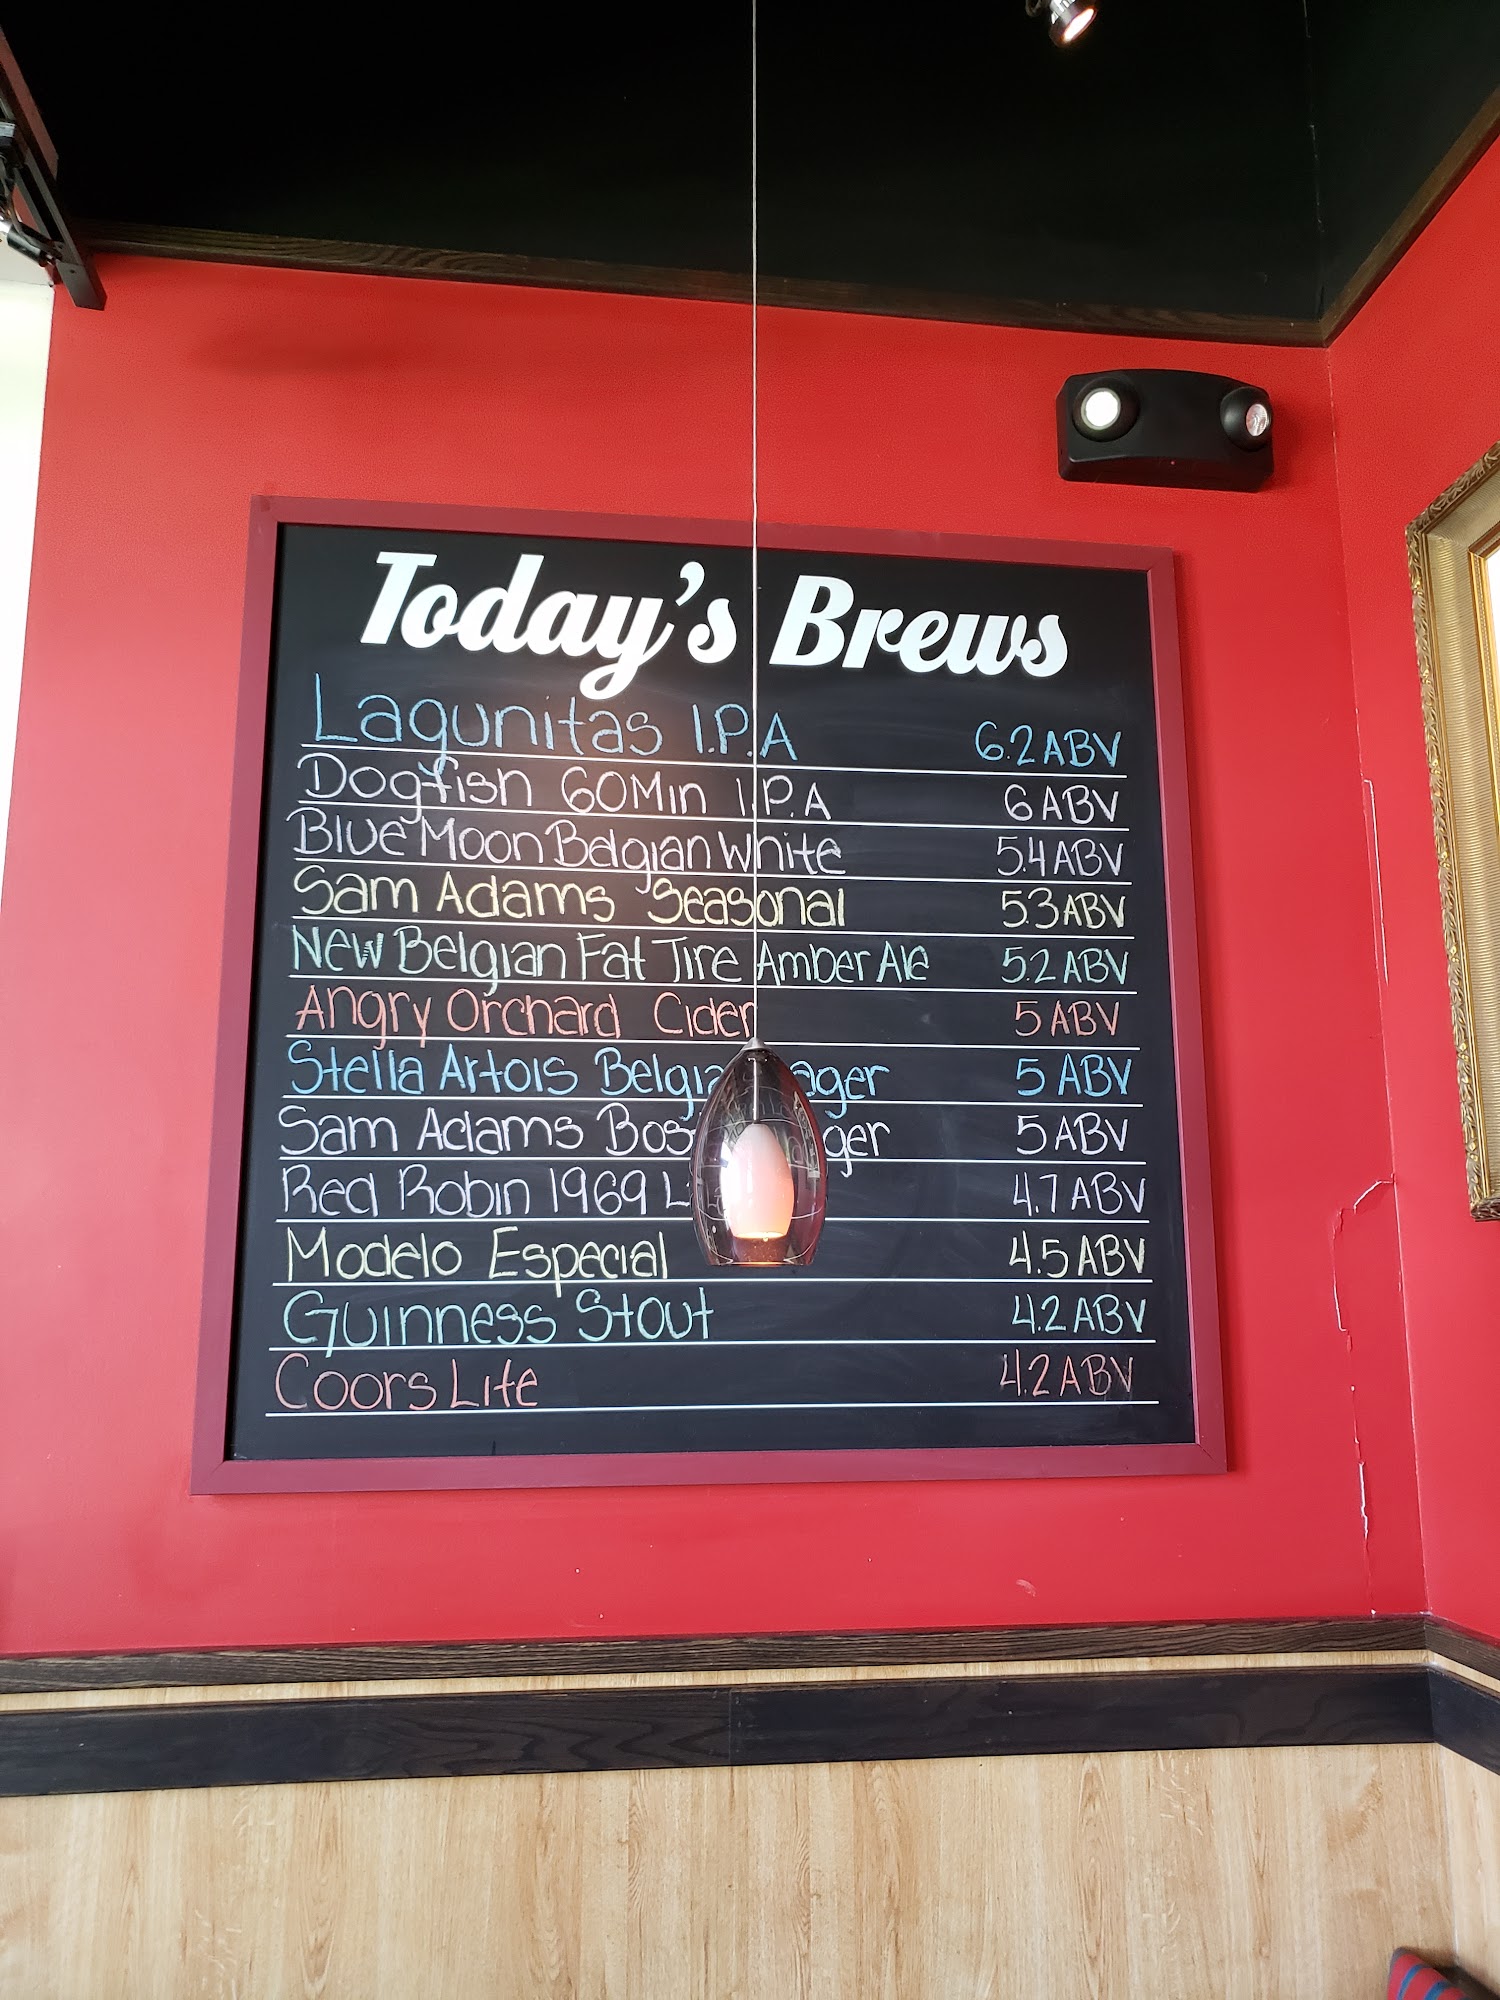 Today's Brews
Lagunitas I.P.A 6.2 ABV
Dogfish 60Min I.P.A 6 ABV
Blue Moon Belgian White 5.4 ABV
Sam Adams Seasonal 5.3 ABV
New Belgian Fat Tire Amber Ale 5.2 ABV
Angry Orchard Cider 5 ABV
Stella Artois Belgian Lager 5 ABV
Sam Adams Boston Lager 5 ABV
Red Robin 1969 4.7 ABV
Modelo Especial 4.5 ABV
Guinness Stout 4.2 ABV
Coors Lite 4.2 ABV